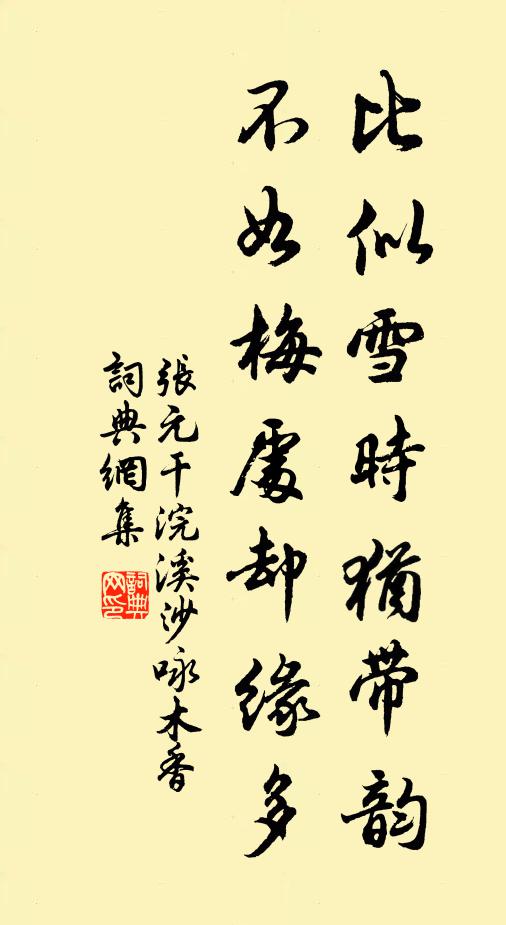 比似雪時猶带韵
不如梅處却缘多
張元干浣溪沙咏木香
詞典網集
詞典
网印